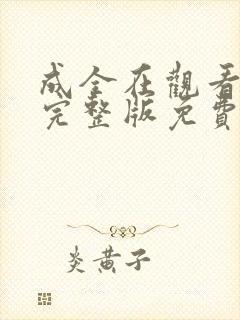 成全在觀看
完整版免費
炎黄子